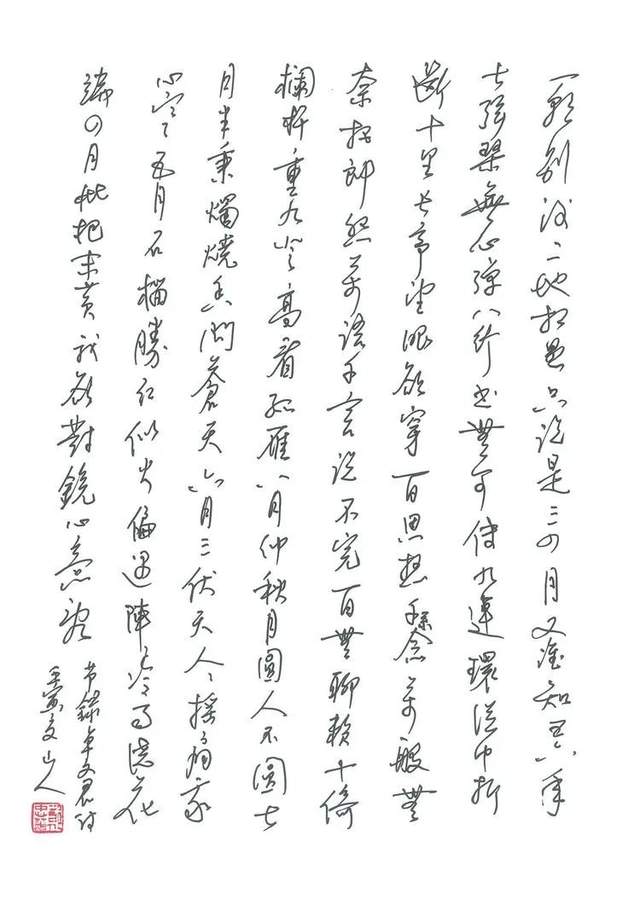 一朝別後二地相思只說是三四月又誰知五六年
七弦琴無心彈八行書無可傳九連環從中折
斷十里長亭望眼欲穿百思想千繫念萬般無
奈把郎怨萬語千言說不完百無聊賴十倚
欄杆重九登高看孤雁八月仲秋月圓人不圓七
月半秉燭燒香問蒼天六月三伏天人人搖扇我
心寒五月石榴勝紅似火偏遇陣陣冷雨澆花
端四月枇杷未黃我欲對鏡心意亂
节錄卓文君詩
山人